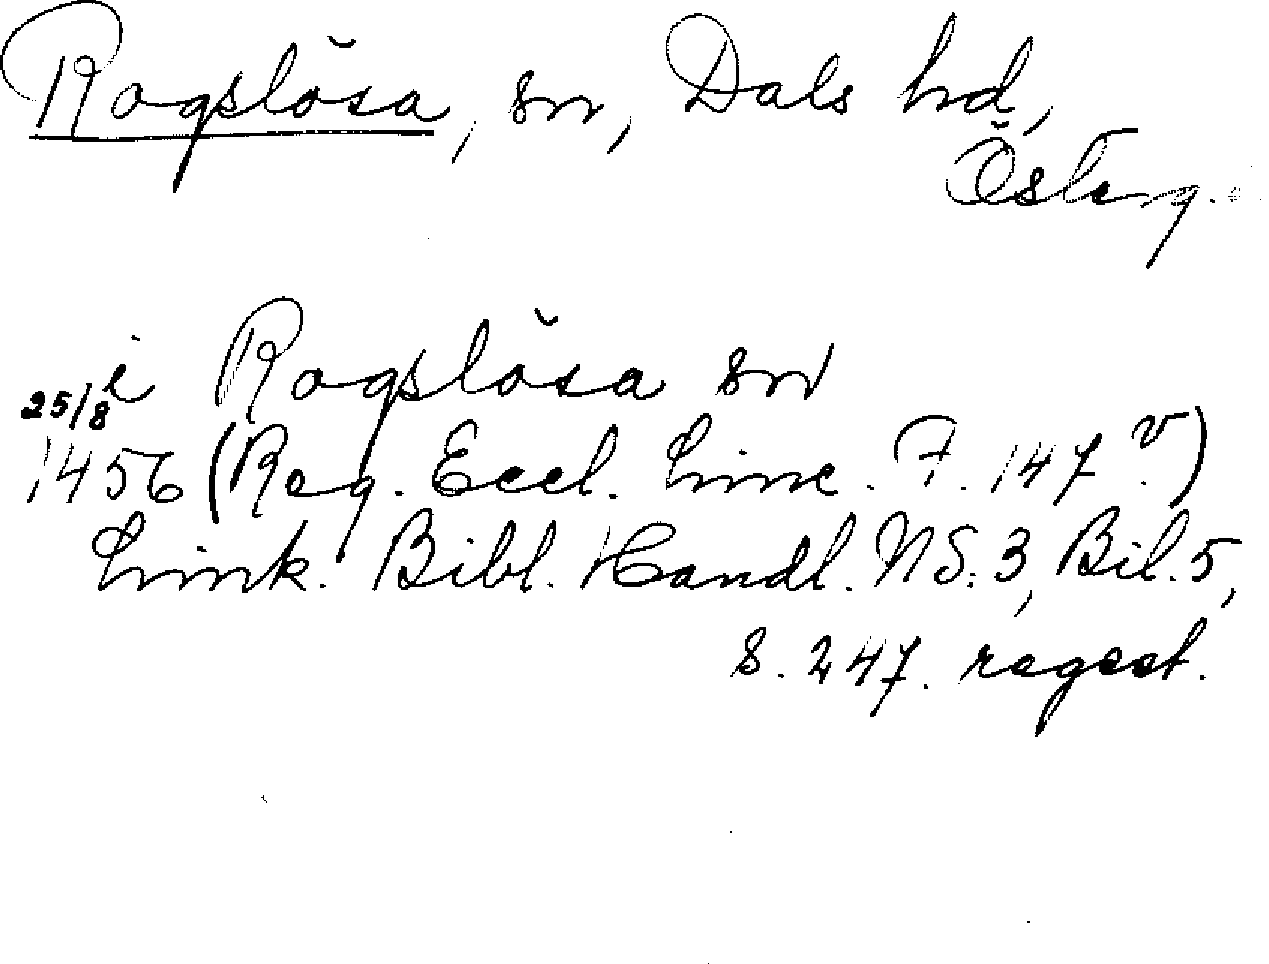 Rogslösa, sn, Dals hd,
Österg.
i Rogslösa sn
25/8
1456 (Reg. Eccl. Linc. F. 147 v.)
Link. Bibl. Handl. NS. 3, Bil. 5,
s. 247. regest.